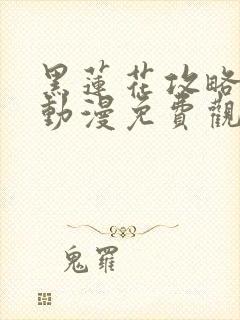 黑蓮花攻略
動漫免費觀
鬼羅